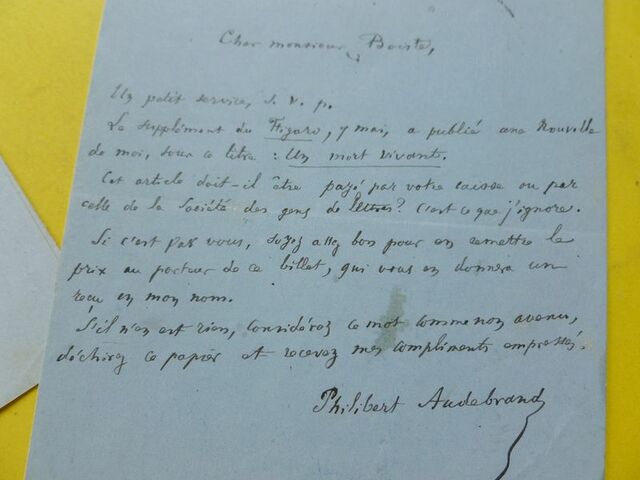 Cher monsieur Boiste,
Un petit service, s. v. p.
Le supplément du Figaro, 7 mai, a publié une Nouvelle
de moi, sous ce titre : Un mort vivant.
Cet article doit-il être payé par votre caisse ou par
celle de la Société des gens de lettres? C'est ce que j'ignore.
Si c'est par vous, soyez assez bon pour en remettre le
prix au porteur de ce billet, qui vous en donnera un
reçu en mon nom.
S'il n'en est rien, considérez ce mot comme non avenu,
déchirez ce papier et recevez mes compliments empressés.
Philibert Audebrand